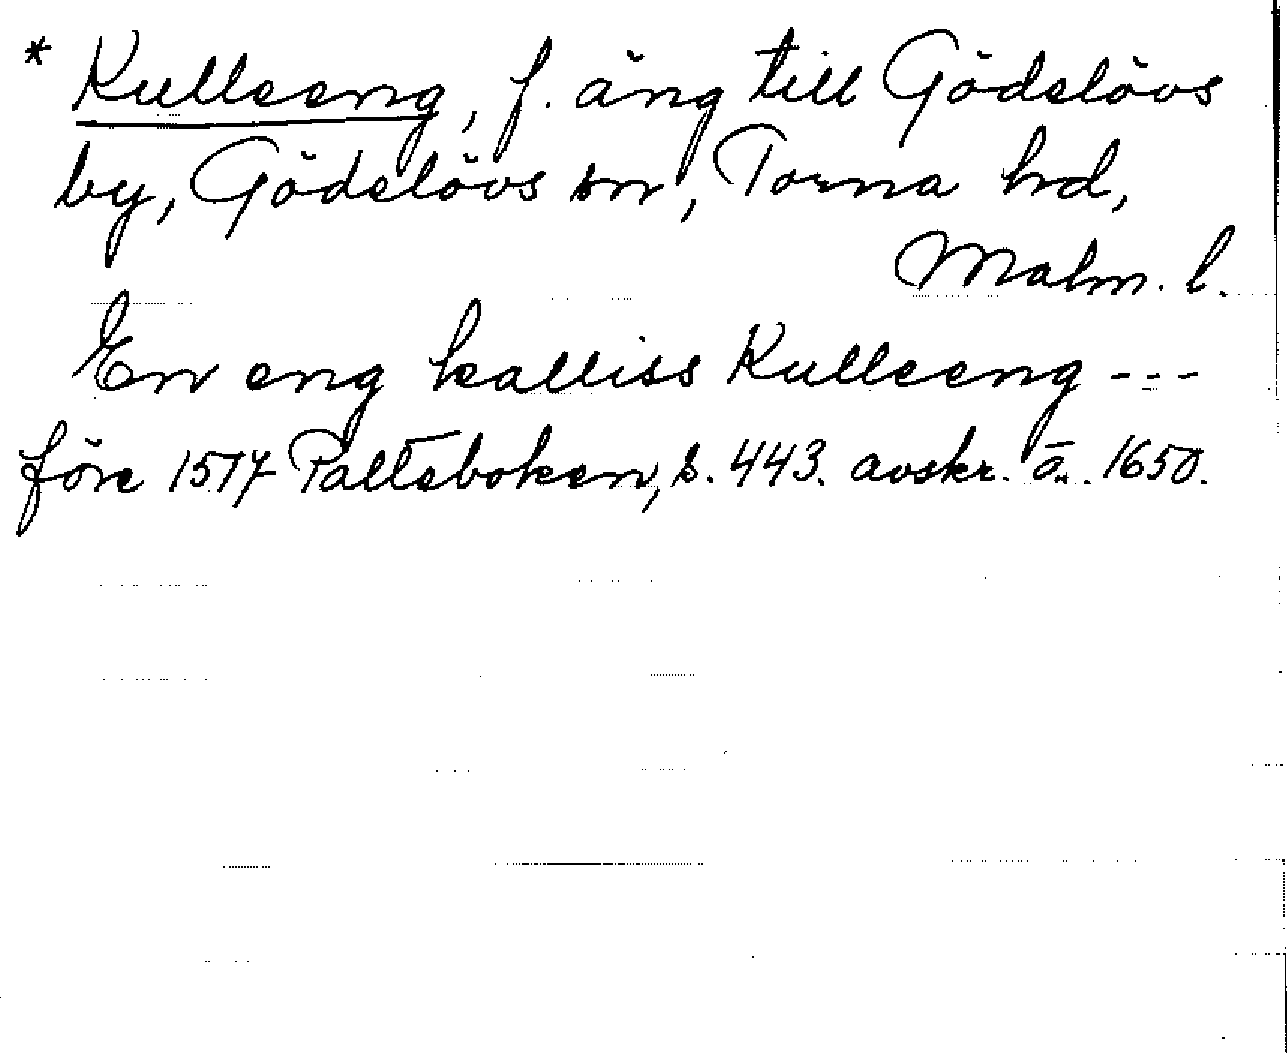 * Kulleeng, f. äng till Gödelövs
by, Gödelövs sn, Torna hd,
Malm. l.
En eng kalliss Kulleeng ---
före 1517 Palteboken, s. 443. avskr. ä. 1650.